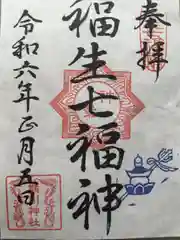 奉拝
福生七福神
令和六年正月五日
神社